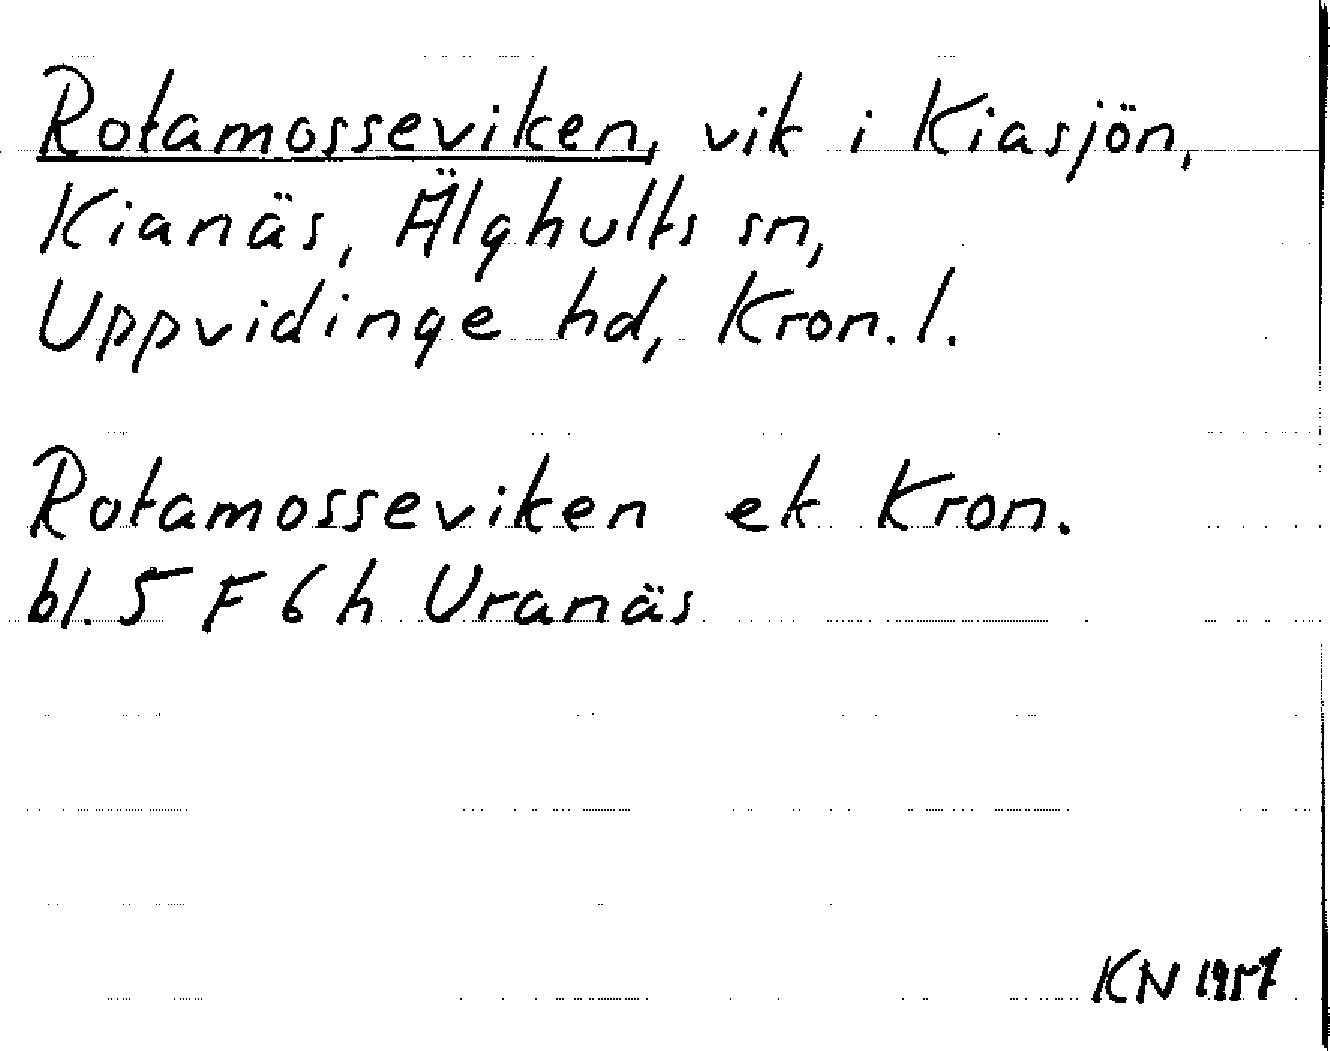 Rotamosseviken, vik i Kiasjön,
Kianäs, Älghults sn,
Uppvidinge hd, Kron. l.
Rotamosseviken ek Kron.
bl. 5 F 6 h Uranäs
KN 1957